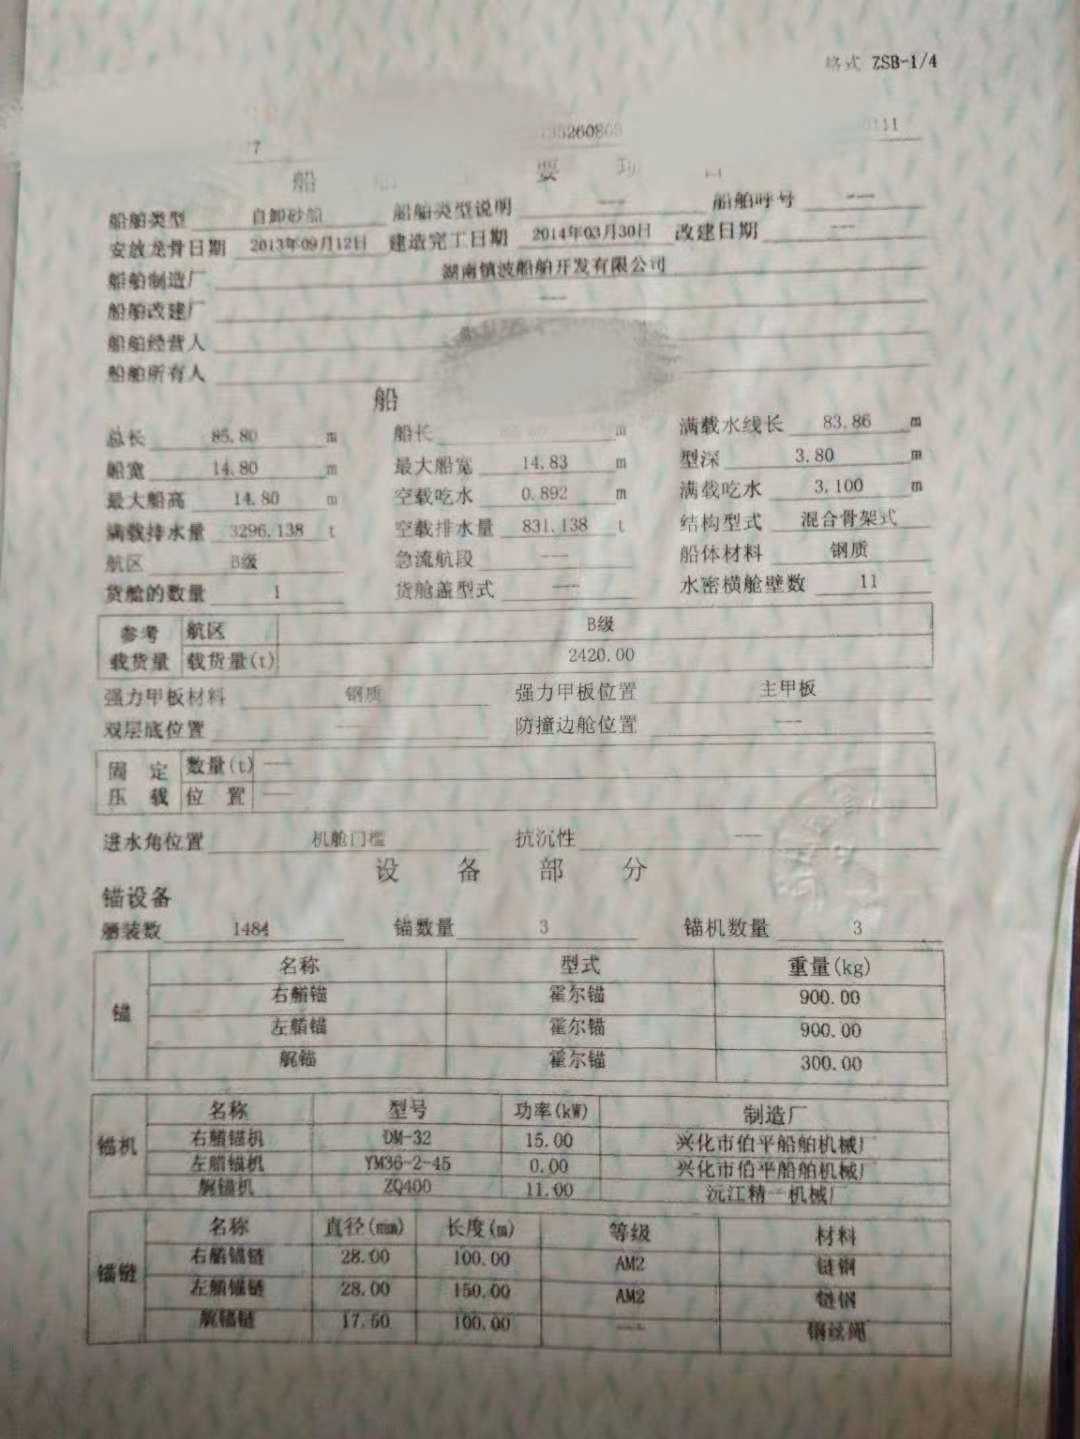 格式 ZSB-1/4
7 135260809 0111
船 要
船舶类型 自卸砂船 船舶类型说明 --- 船舶呼号 ---
安放龙骨日期 2013年09月12日 建造完工日期 2014年03月30日 改建日期 ---
船舶制造厂 湖南镇波船舶开发有限公司
船舶改建厂 ---
船舶经营人
船舶所有人
船
总长 85.80 m 船长 m 满载水线长 83.86 m
船宽 14.80 m 最大船宽 14.83 m 型深 3.80 m
最大船高 14.80 m 空载吃水 0.892 m 满载吃水 3.100 m
满载排水量 3296.138 t 空载排水量 831.138 t 结构型式 混合骨架式
航区 B级 急流航段 --- 船体材料 钢质
货舱的数量 1 货舱盖型式 --- 水密横舱壁数 11
参考 航区 B级
载货量 载货量(t) 2420.00
强力甲板材料 钢质 强力甲板位置 主甲板
双层底位置 --- 防撞边舱位置 ---
固定 数量(t) ---
压载 位置 ---
进水角位置 机舱门槛 抗沉性 ---
设备部分
锚设备
舾装数 1484 锚数量 3 锚机数量 3
名称 型式 重量(kg)
锚 右艏锚 霍尔锚 900.00
左艏锚 霍尔锚 900.00
艉锚 霍尔锚 300.00
名称 型号 功率(kW) 制造厂
锚机 右艏锚机 DM-32 15.00 兴化市伯平船舶机械厂
左艏锚机 YM36-2-45 0.00 兴化市伯平船舶机械厂
艉锚机 ZQ400 11.00 沅江精一机械厂
名称 直径(mm) 长度(m) 等级 材料
锚链 右艏锚链 28.00 100.00 AM2 链钢
左艏锚链 28.00 150.00 AM2 链钢
艉锚链 17.50 100.00 --- 钢丝绳